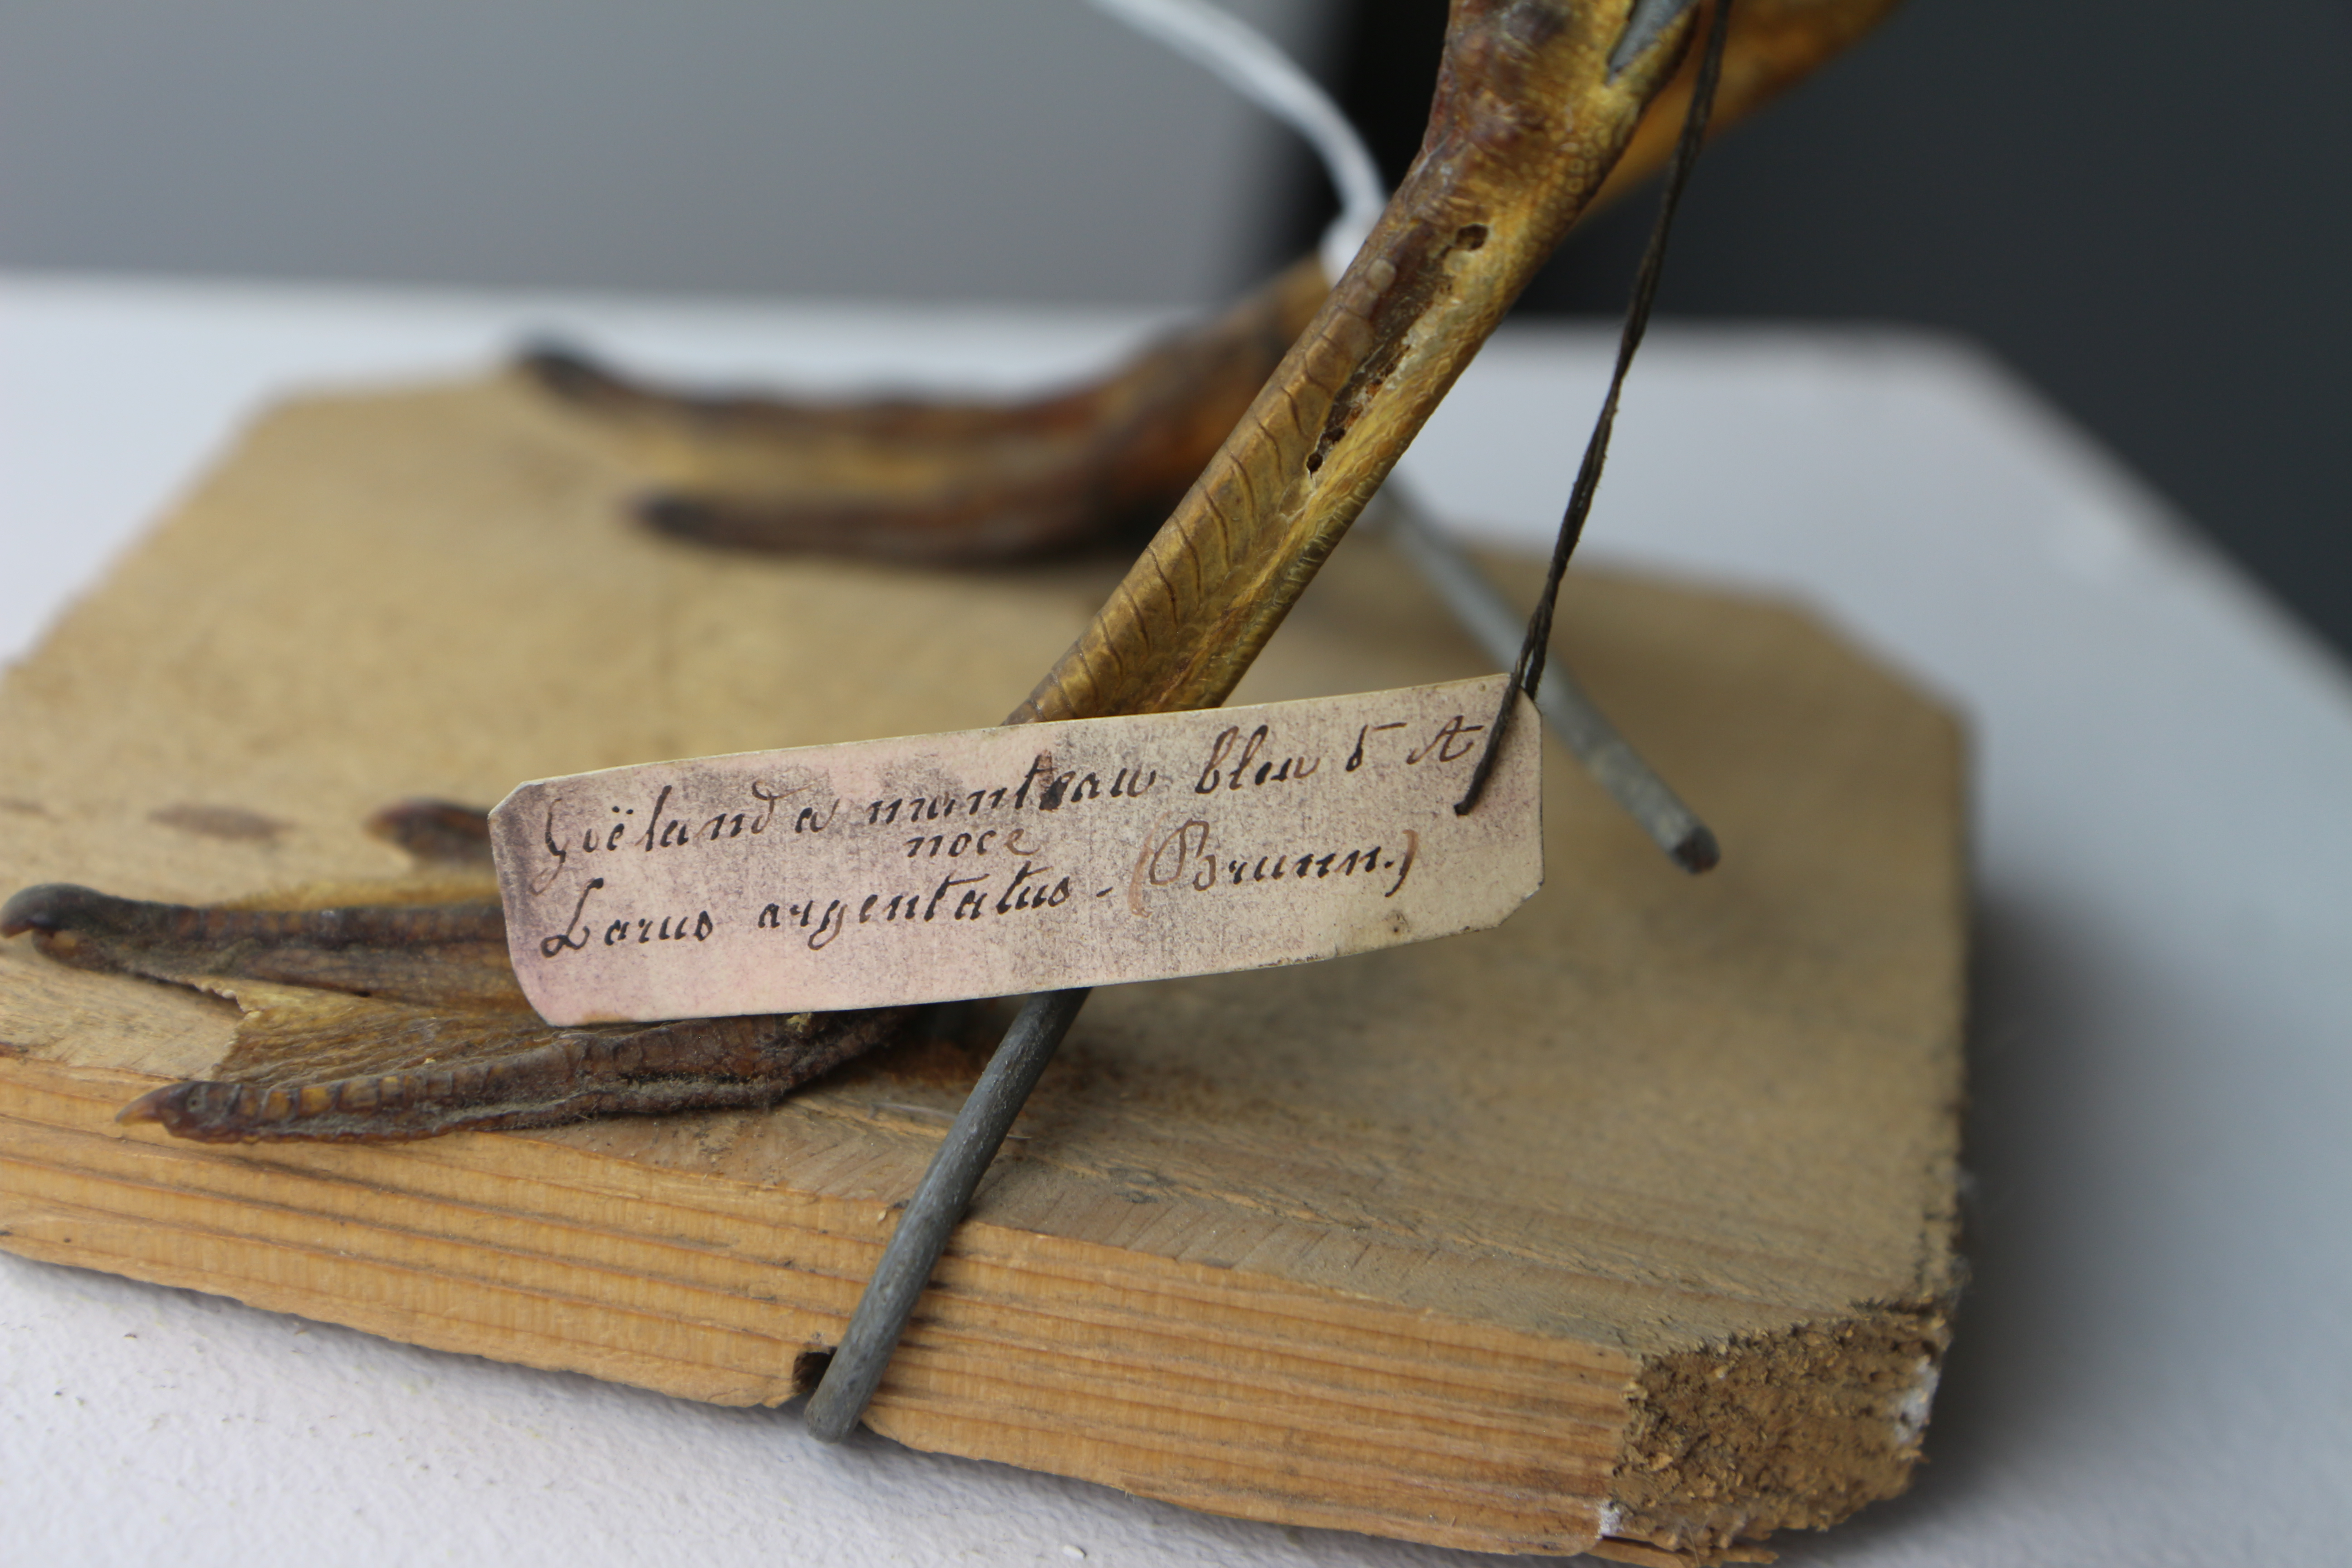 Goëland a manteau bleu ♂ A
noce
Larus argentatus - (Brunn.)